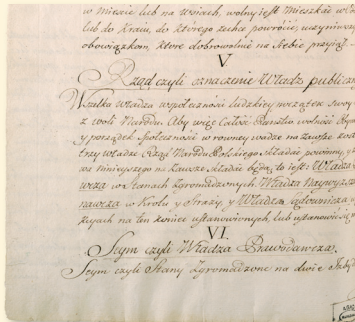 w Mieście lub na wsiach, wolny jest mieszkać w
lub do Kraiu, do którego zechce powrócić, uczyniwszy
obowiązkom, które dobrowolnie na siebie przyiął.
V.
Rząd czyli oznaczenie Władz publicz
Wszelka władza w społeczności ludzkiey początek swoy
z woli Narodu. Aby więc Całość Państw wolność
y porządek społeczności w równey wadze na zawsze
trzy władze Rząd Narodu Polskiego składać powinny, y z
wa ninieyszego na zawsze składać będą, to iest: Władza
wcza w Stanach zgromadzonych, Władza Naywyższ
nawcza w Królu y Straży, y Władza Sądownicza w
kcyach na ten koniec ustanowionych, lub ustanowić się
VI.
Seym czyli Władza Prawodawcza.
Seym czyli Stany Zgromadzone na dwie Izby